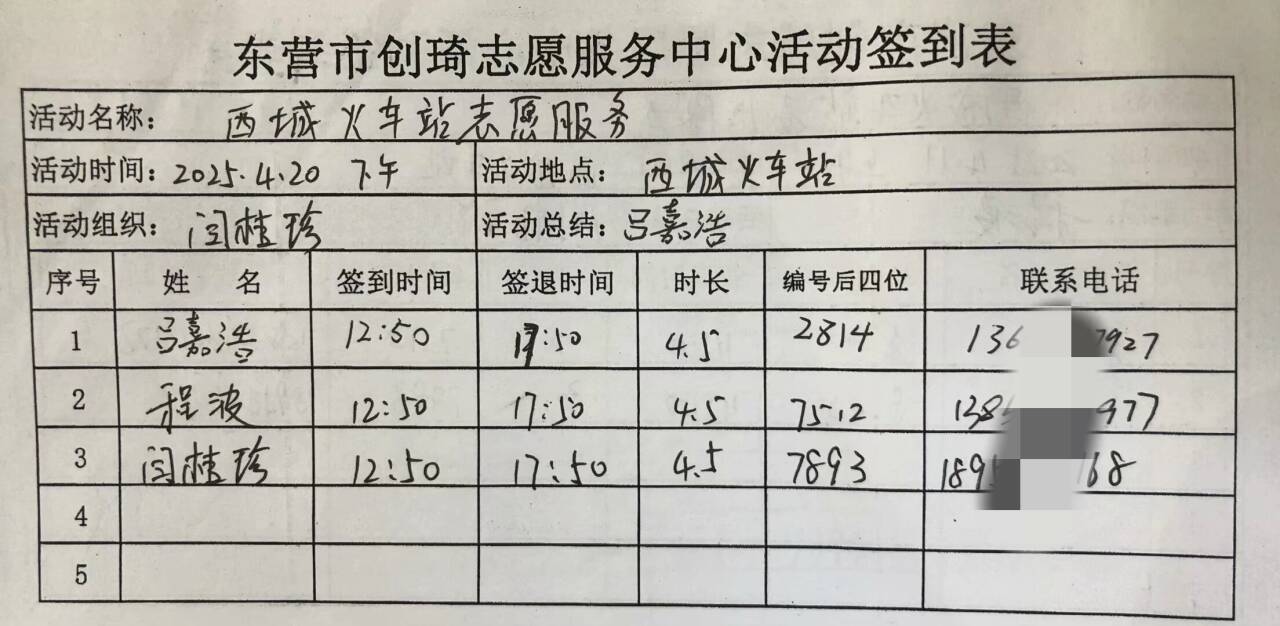 东营市创琦志愿服务中心活动签到表
活动名称: 西城火车站志愿服务
活动时间: 2025.4.20 下午 活动地点: 西城火车站
活动组织: 闫桂珍 活动总结: 吕嘉浩
序号 姓 名 签到时间 签退时间 时长 编号后四位 联系电话
1 吕嘉浩 12:50 17:50 4.5 2814 136 7927
2 程波 12:50 17:50 4.5 7512 138 977
3 闫桂珍 12:50 17:50 4.5 7893 1895 168
4
5